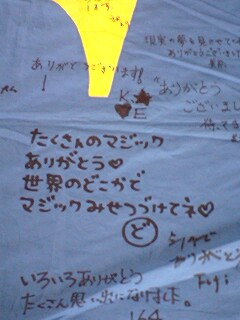 現実の夢を見させてくれ
ありがとうございまし
ありがとうございます!
K★
♥E
ありがとう
ございまし
たくさんのマジック
ありがとう♡
世界のどこかで
マジックみせつづけてネ♡
ど
いろいろありがとう
たくさん思い出になりました。
164